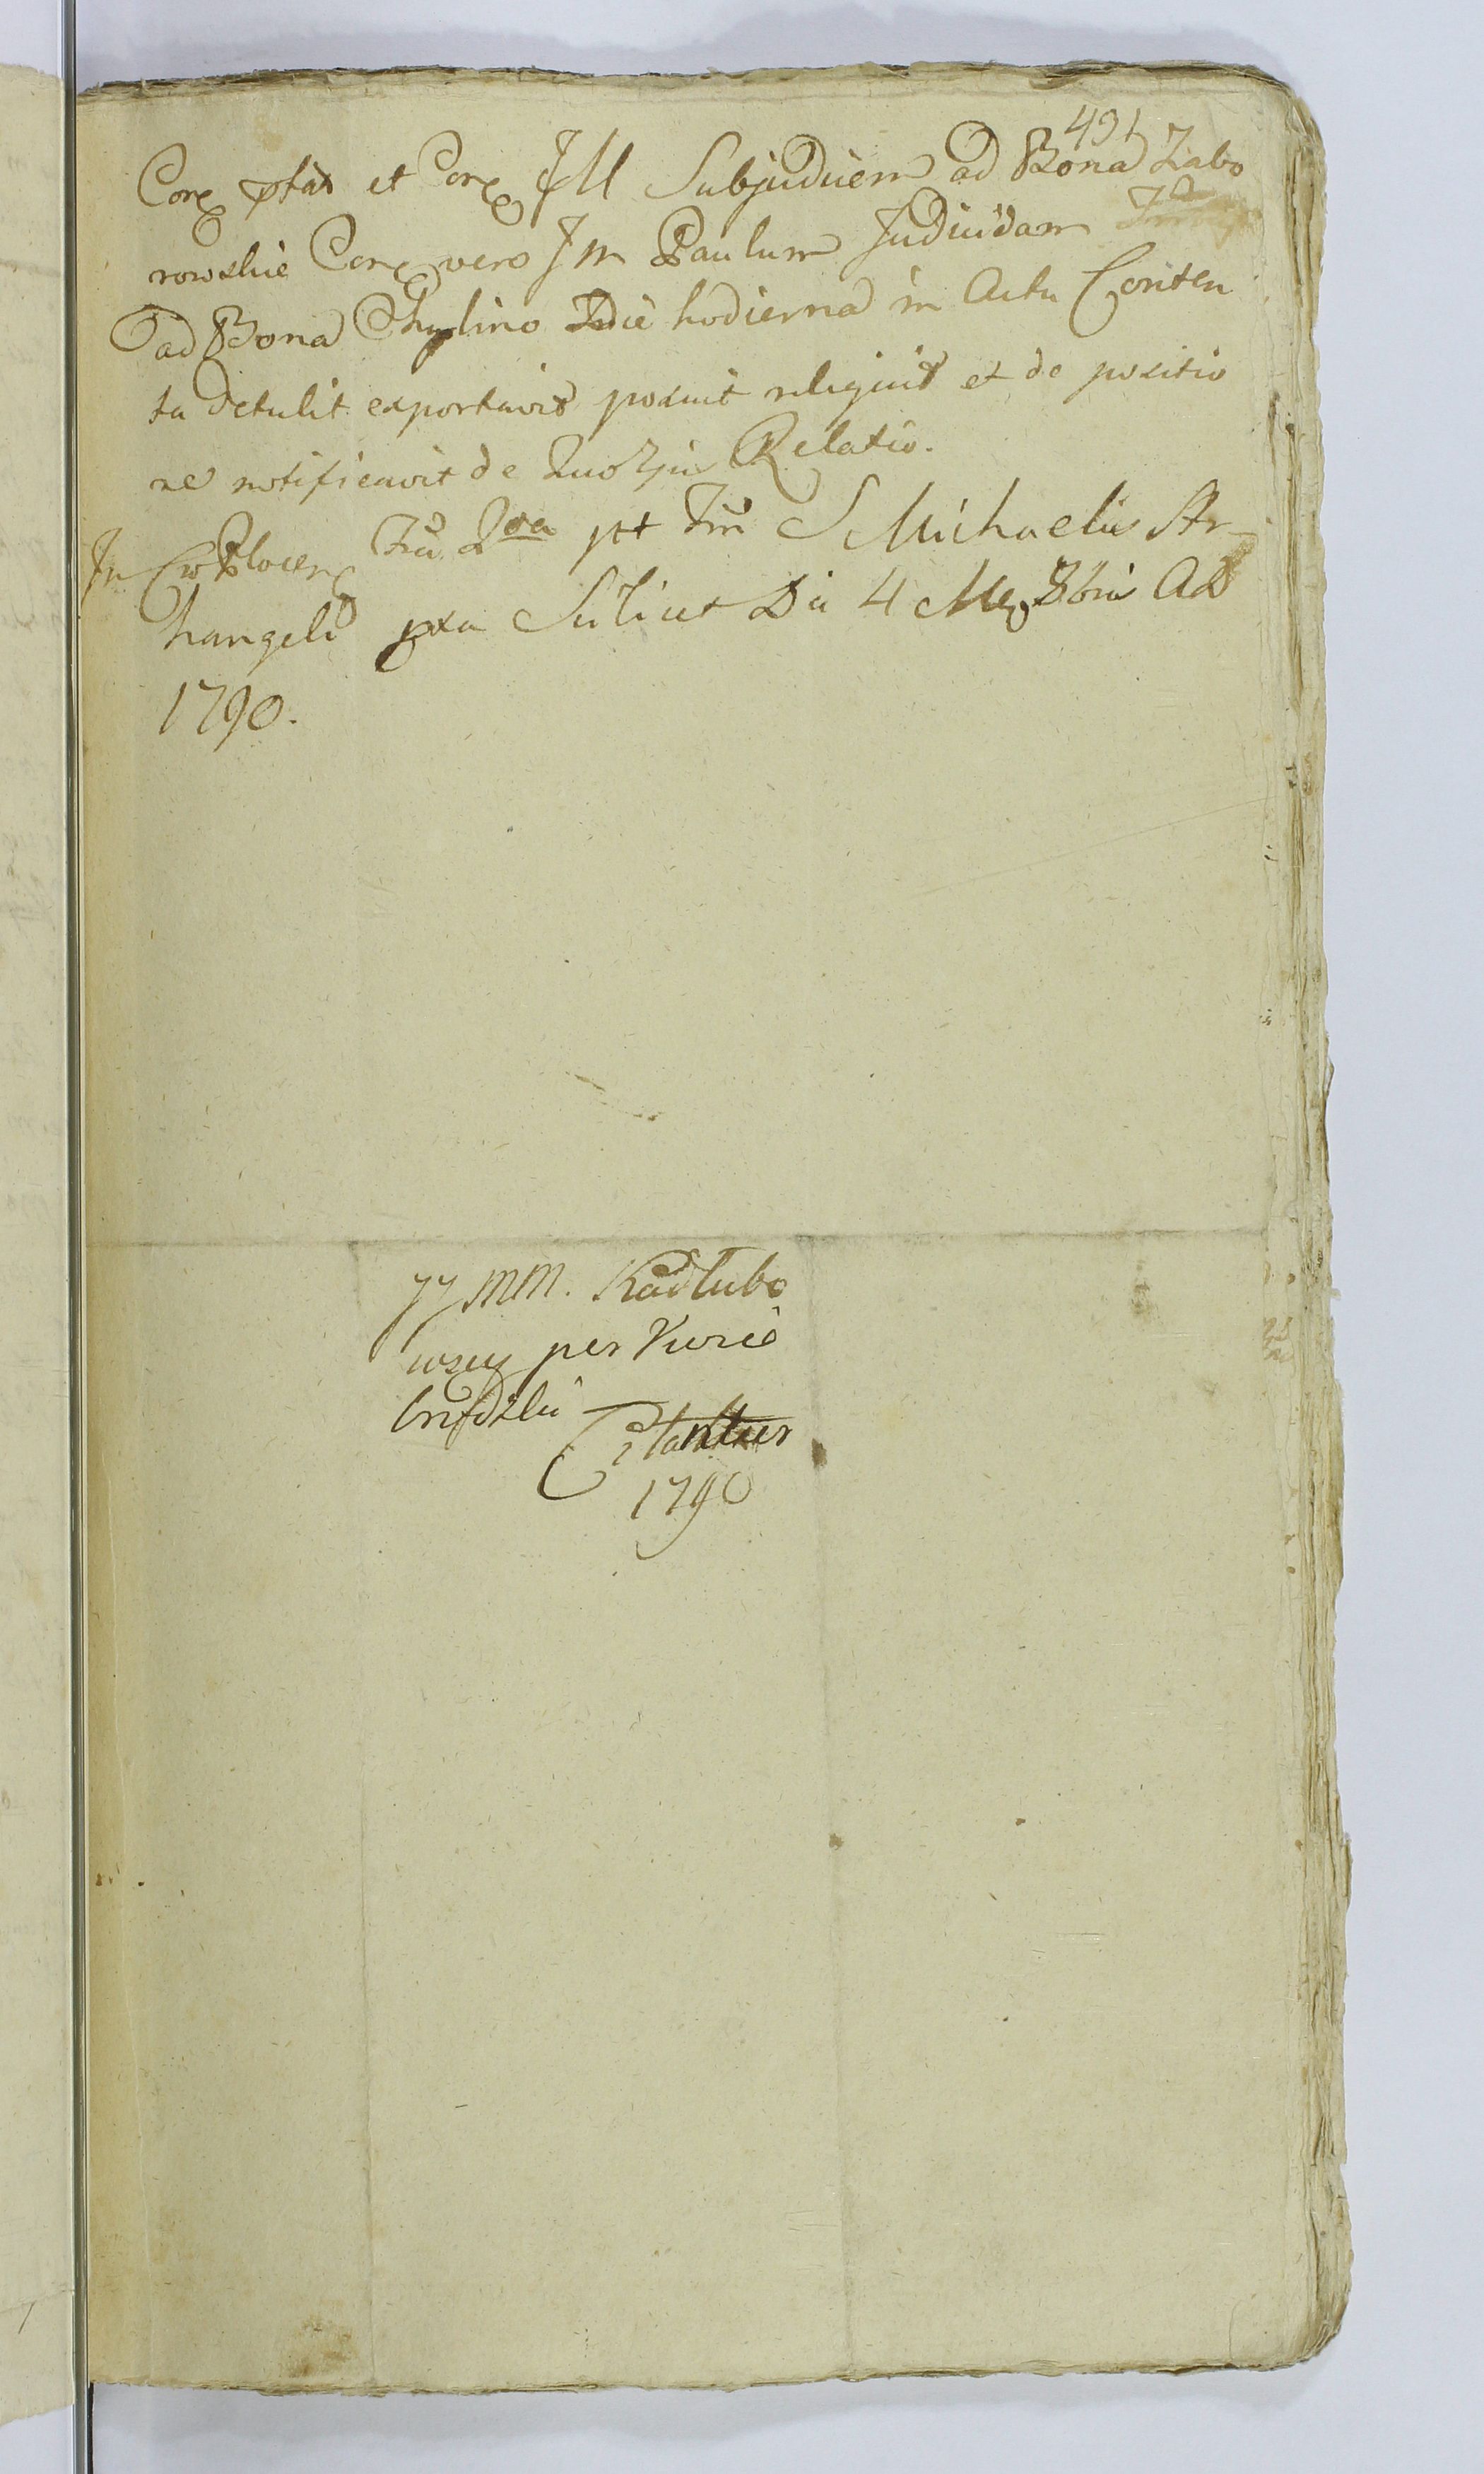 491
Conx et Conx JM Subjudicem ad Bona Zabo
rowskie Conx vero Jm Paulum Judicidam
ad Bona Chylino Die hodierna in Actu Conten
ta detulit exportavit posuit reliquit et de positio
ne notificavit de Quo Relatio.
In Cro Plocen Fria 2da pt Fm S Michaelis Ar-
hangeli pxa Scilicet Die 4 Mes 8bris AD
1790.
JJ MM. Kadlubo
wscy per Kurie
Citantur
1790